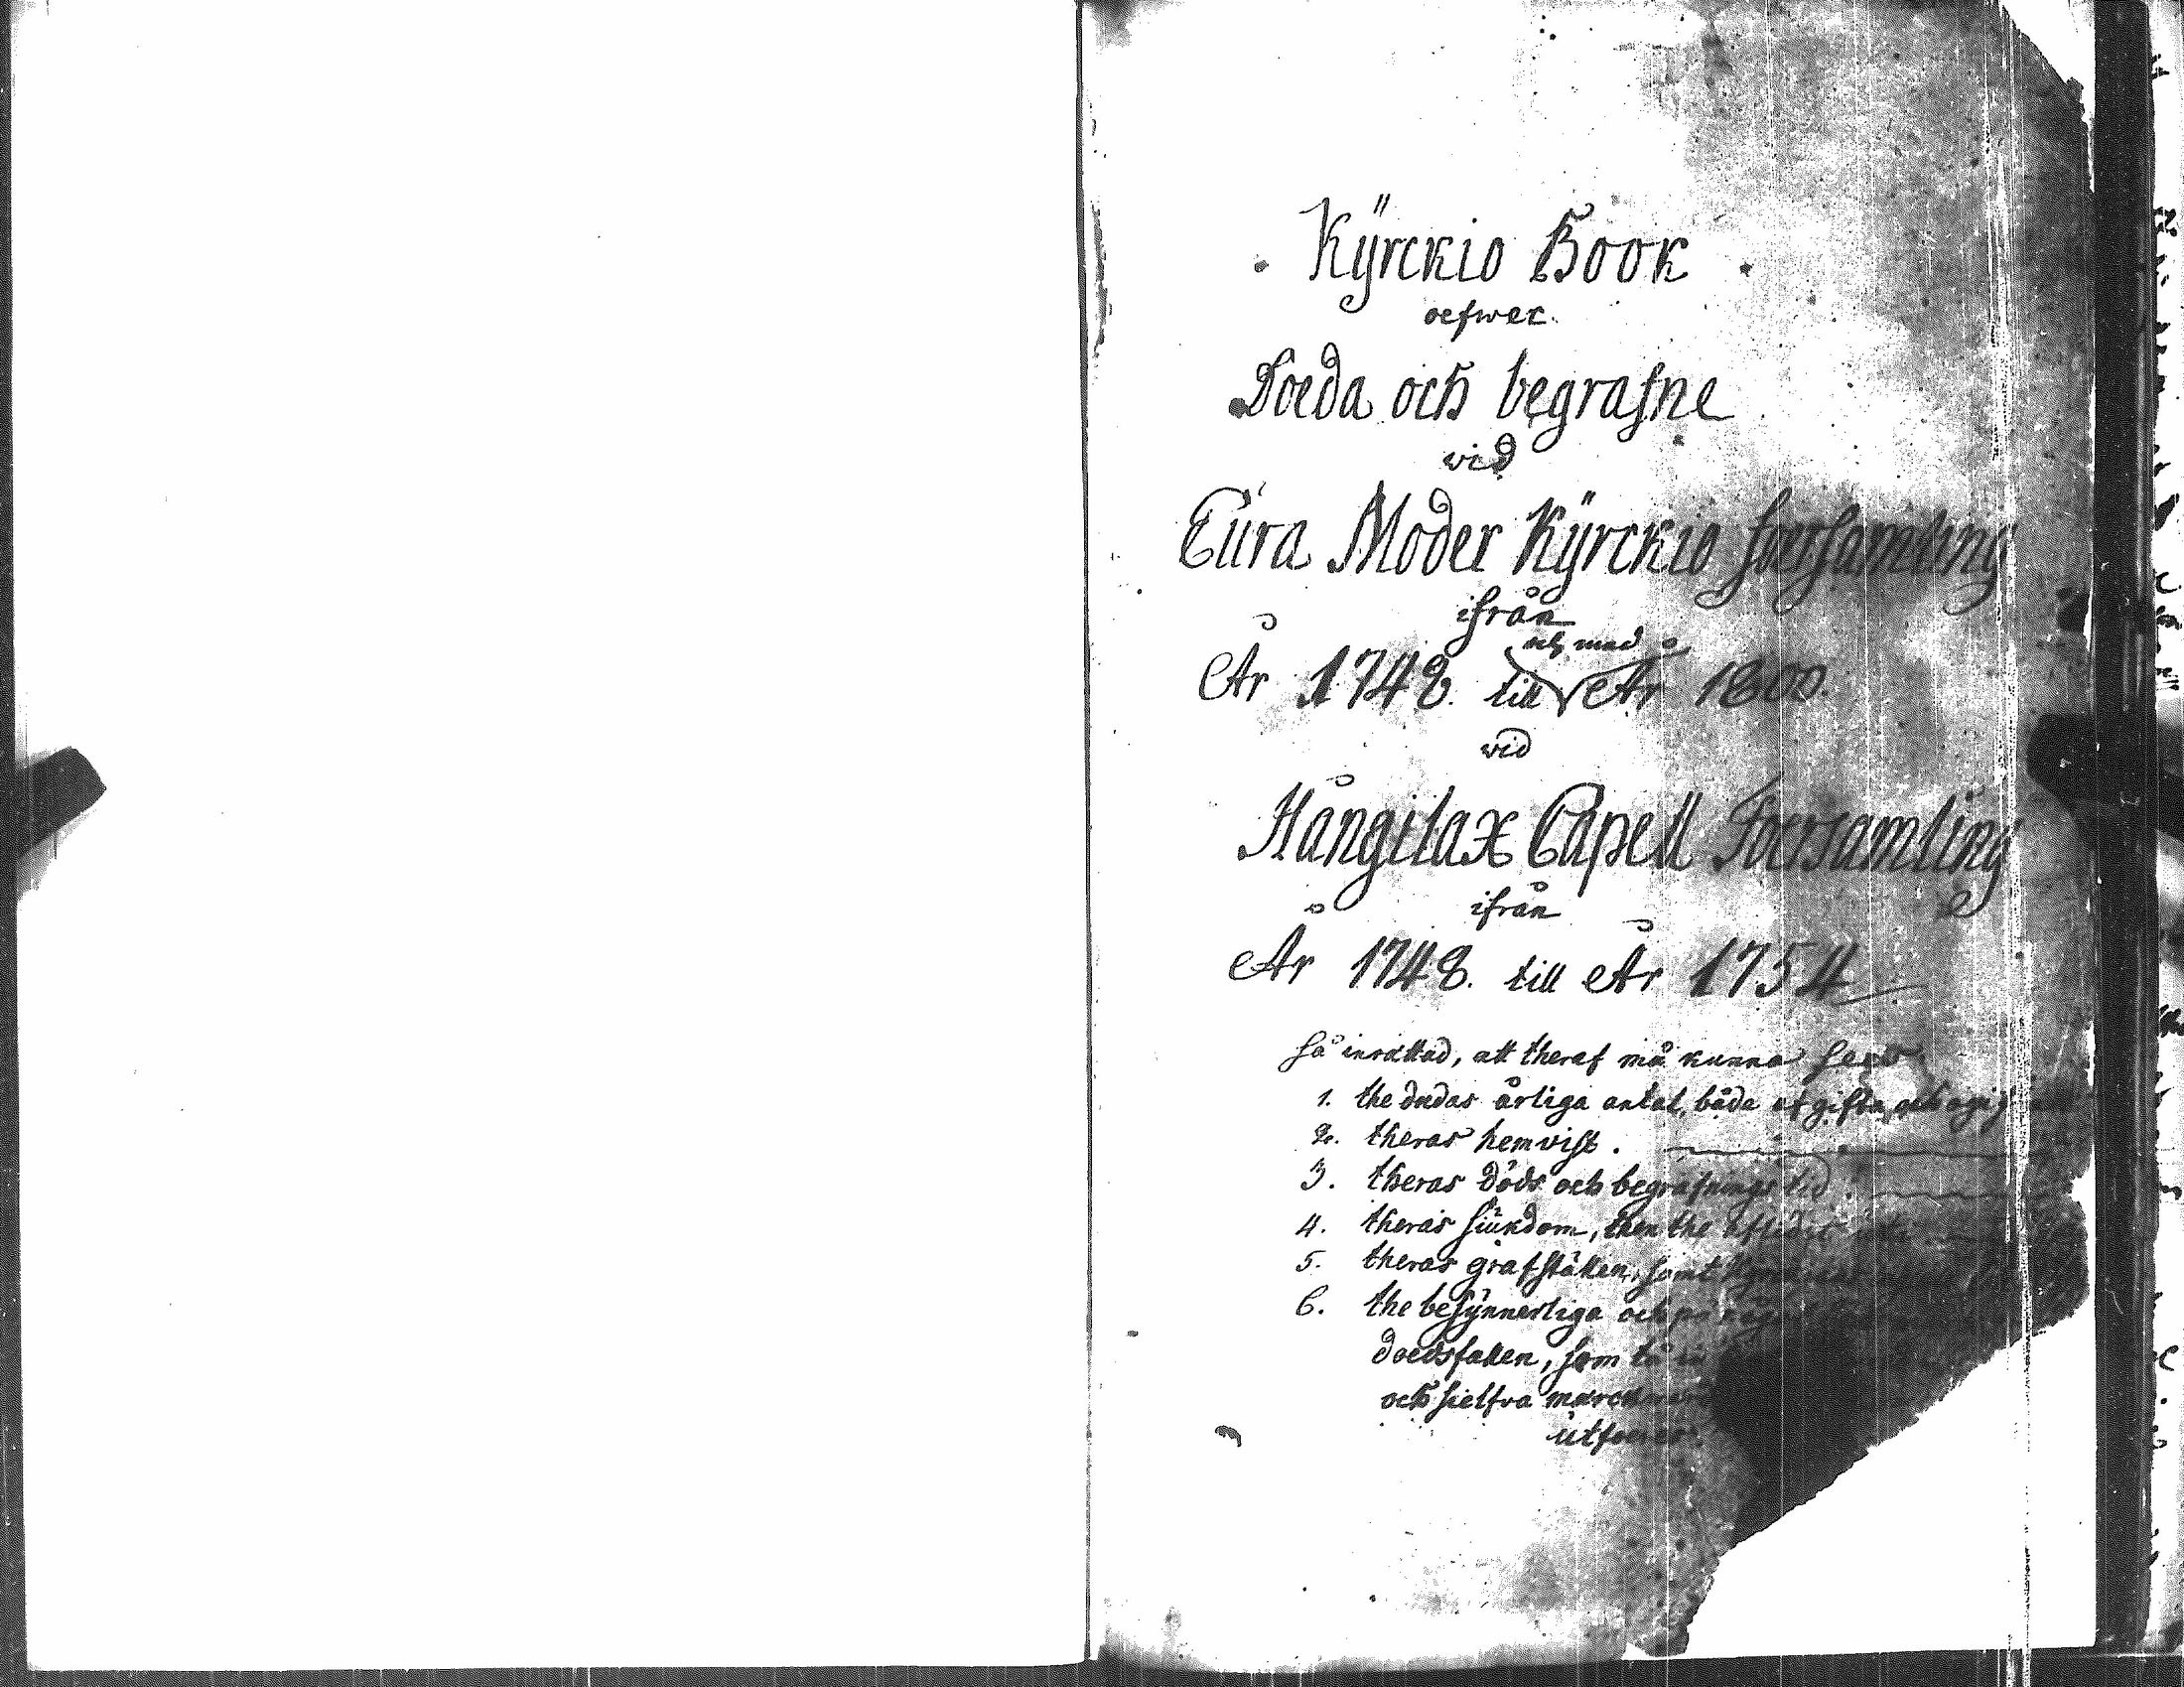 Kÿrckio Book
oefwer
Doeda och begrafne
vid
Eura Moder Kÿrckio foersamling
ifrån
och med
År 1748. till År 1800.
vid
Hångilax Capell Foersamling
ifrån
År 1748. till År 1754
så inrättad, att theraf må kunna
1. the dödas årliga antal, både af gifta, och
2. theras hemvist.
3. theras döds och begrafnings tid.
4. theras siukdom, then the
5. theras grafställen, samt
6. the besÿnnerliga och
doedsfallen, som
och sielfva